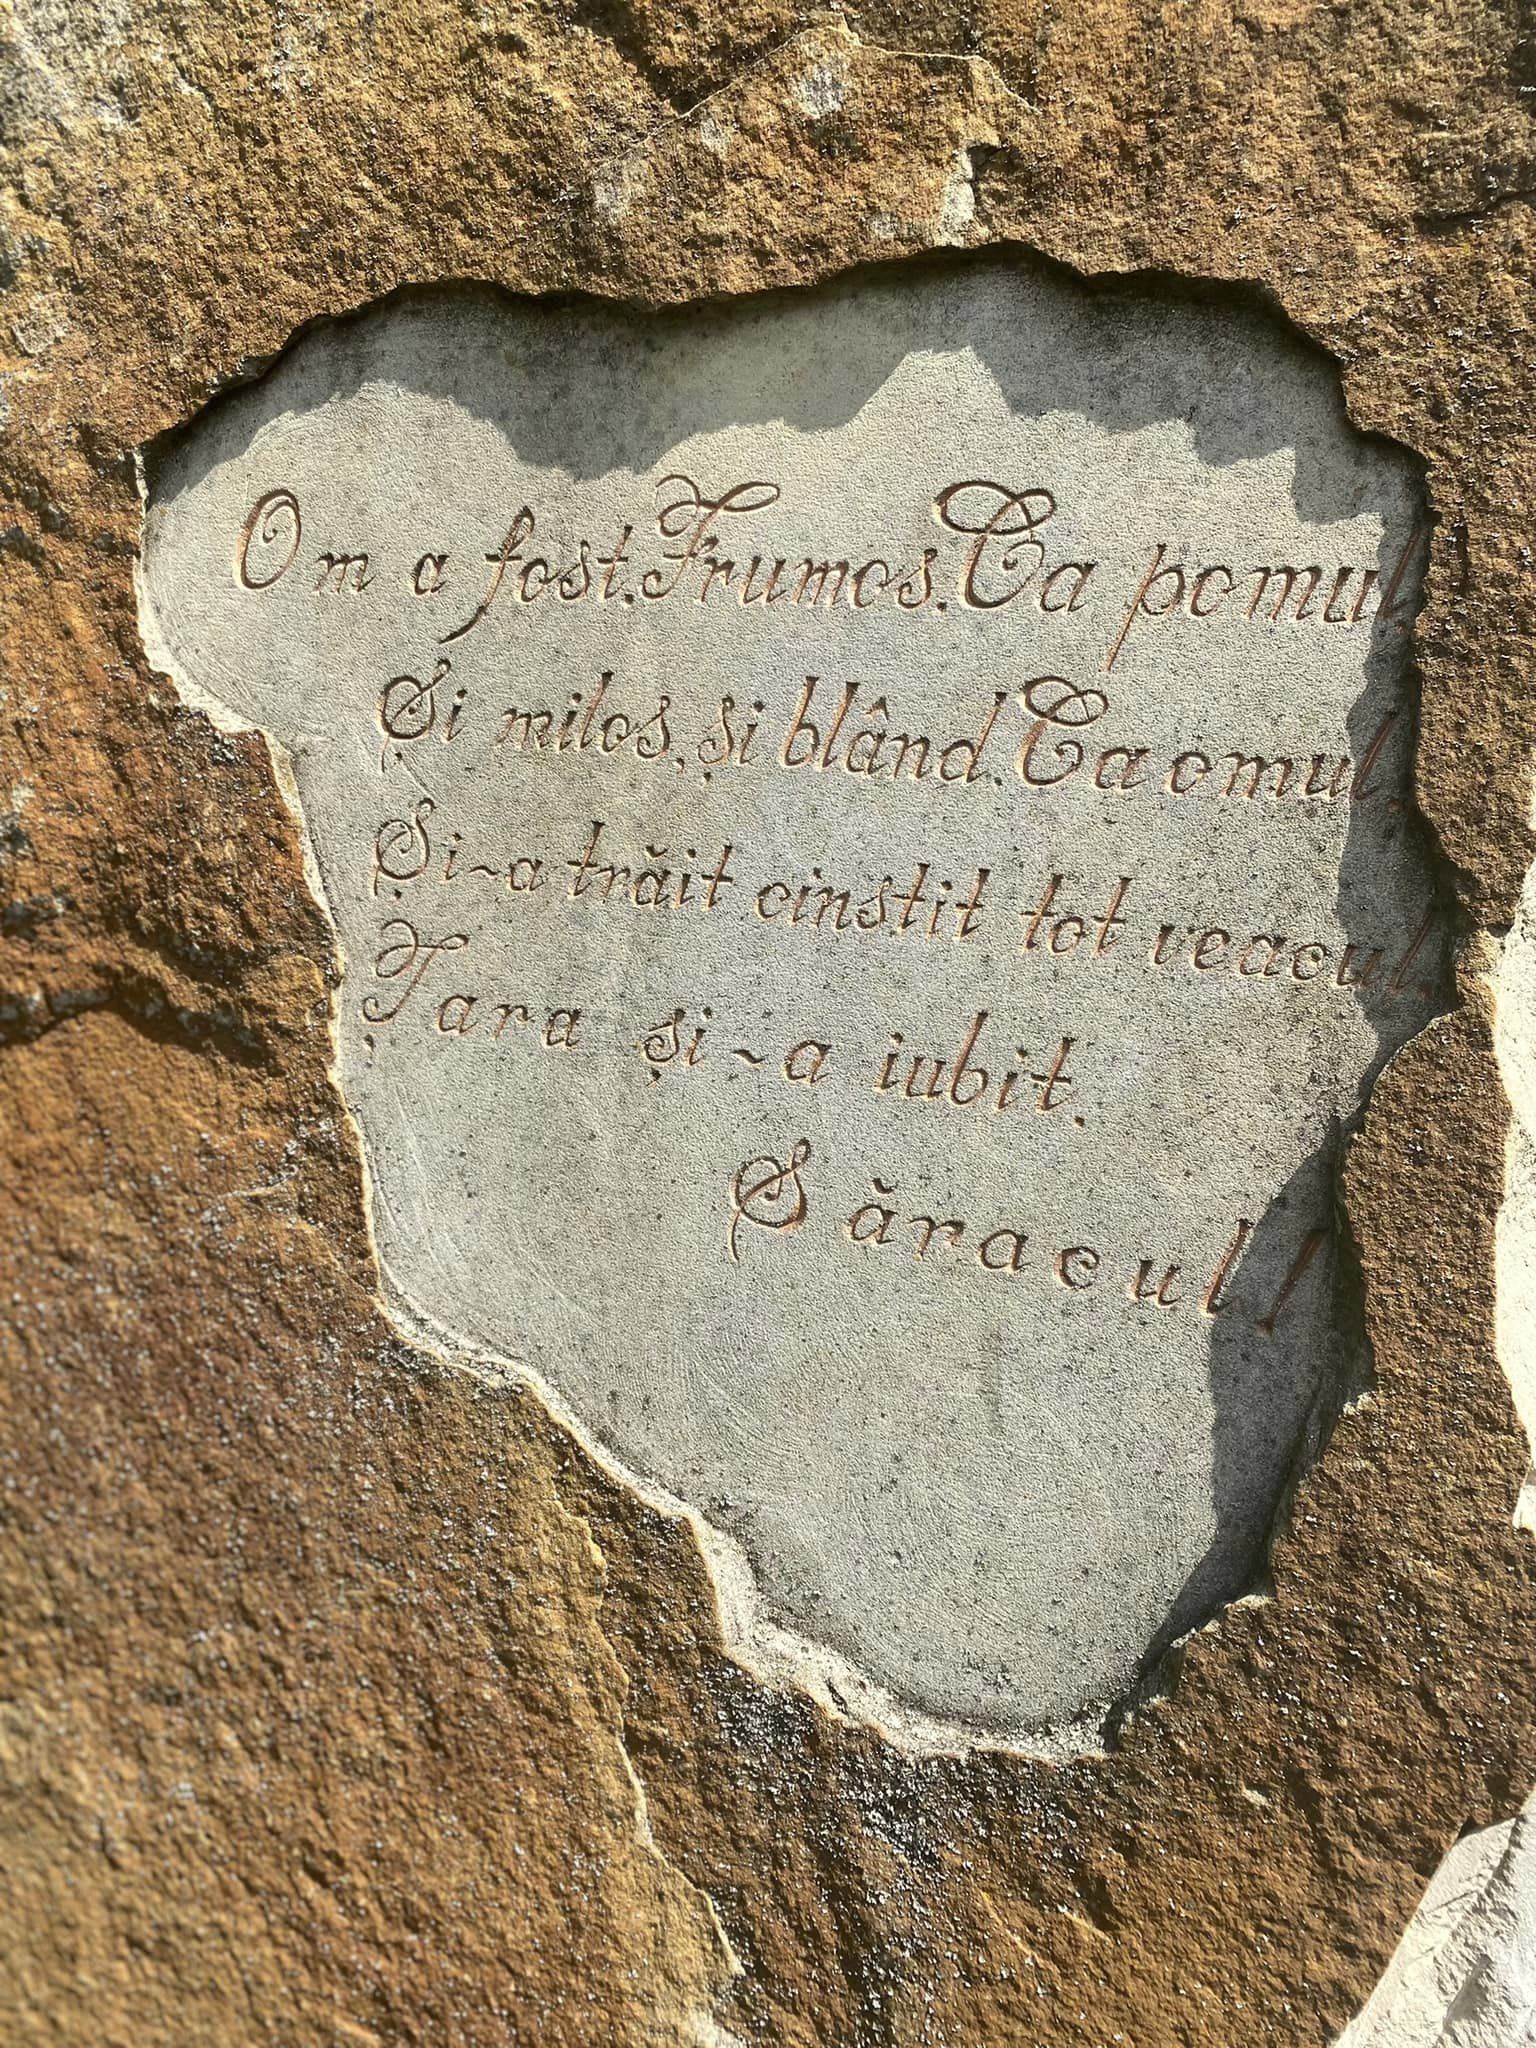 Om a fost. Frumos. Ca pomul.
Și milos, și blând. Ca omul.
Și-a trăit cinstit tot veacul.
Țara și-a iubit.
Săracul!